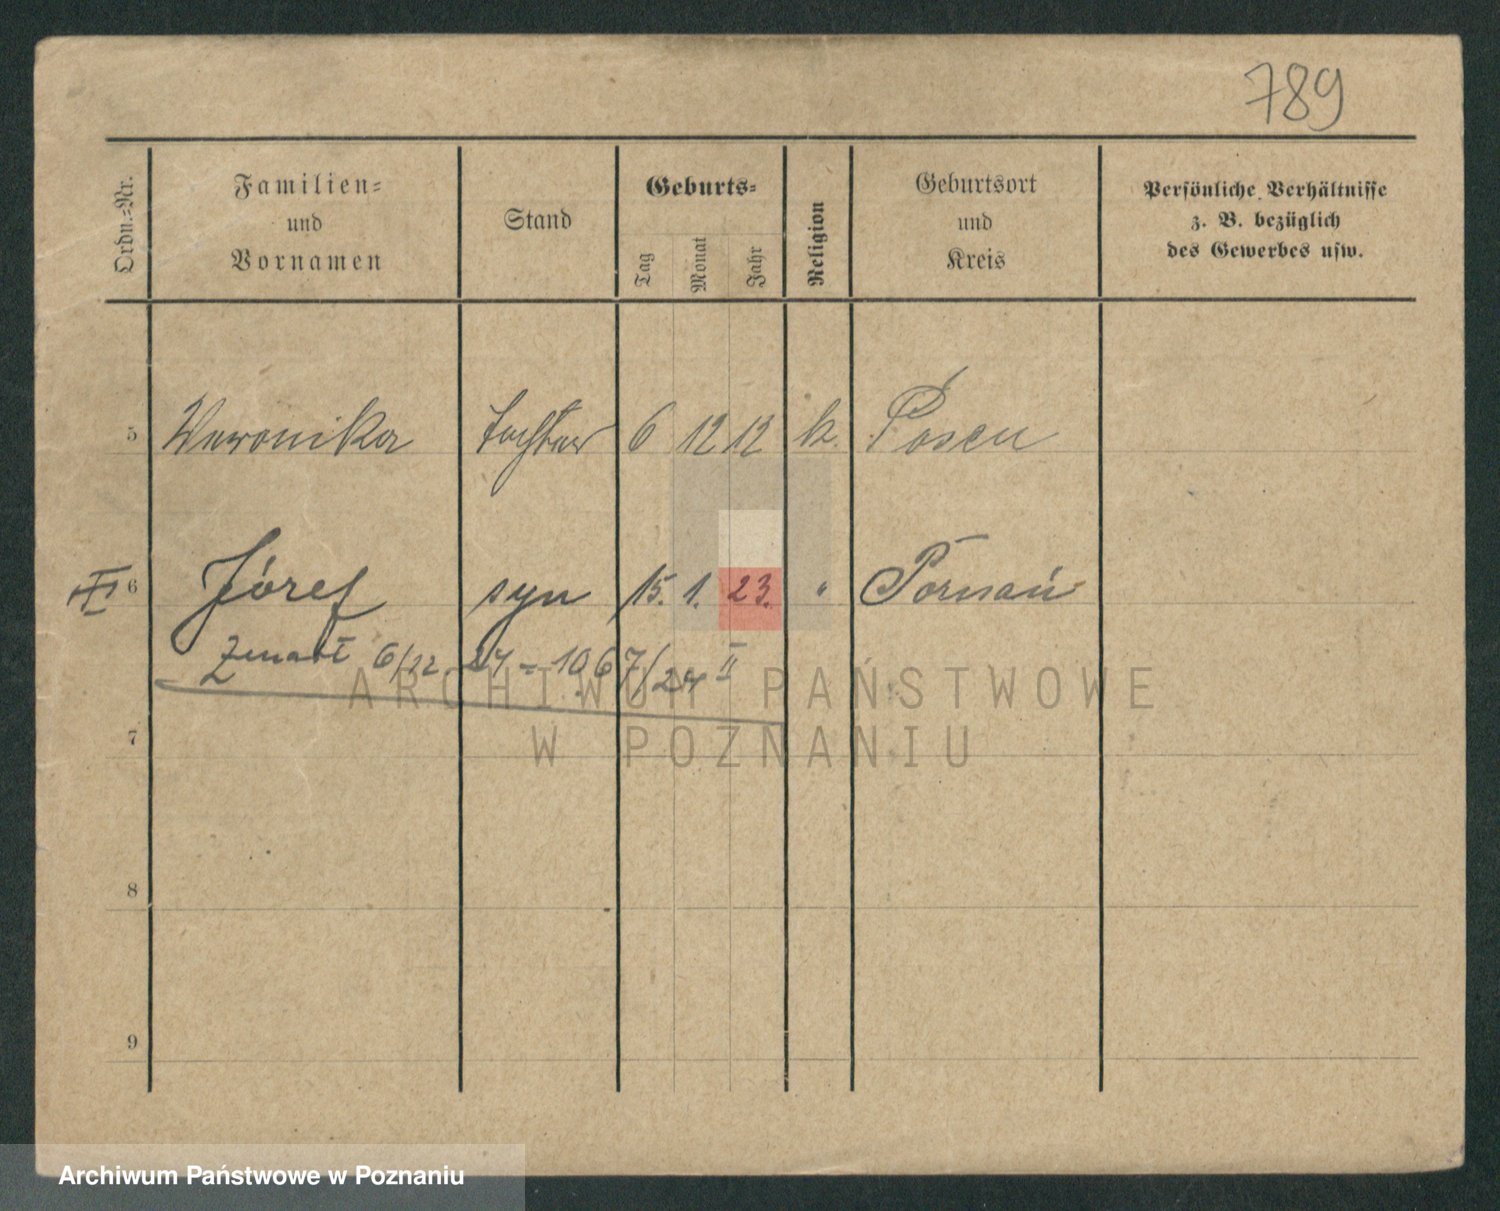 789
Ordn.-Nr.
Familien-
und
Vornamen
Stand
Geburts-
Tag
Monat
Jahr
Religion
Geburtsort
und
Kreis
Persönliche Verhältnisse
z. B. bezüglich
des Gewerbes usw.
5 Weronika Tochter 6 12 12 k. Posen
III 6 Józef syn 15. 1. 23. " Poznań
Zmarł 6/12. 24 = 1067/24 II
7
8
9
ARCHIWUM PAŃSTWOWE
W POZNANIU
Archiwum Państwowe w Poznaniu